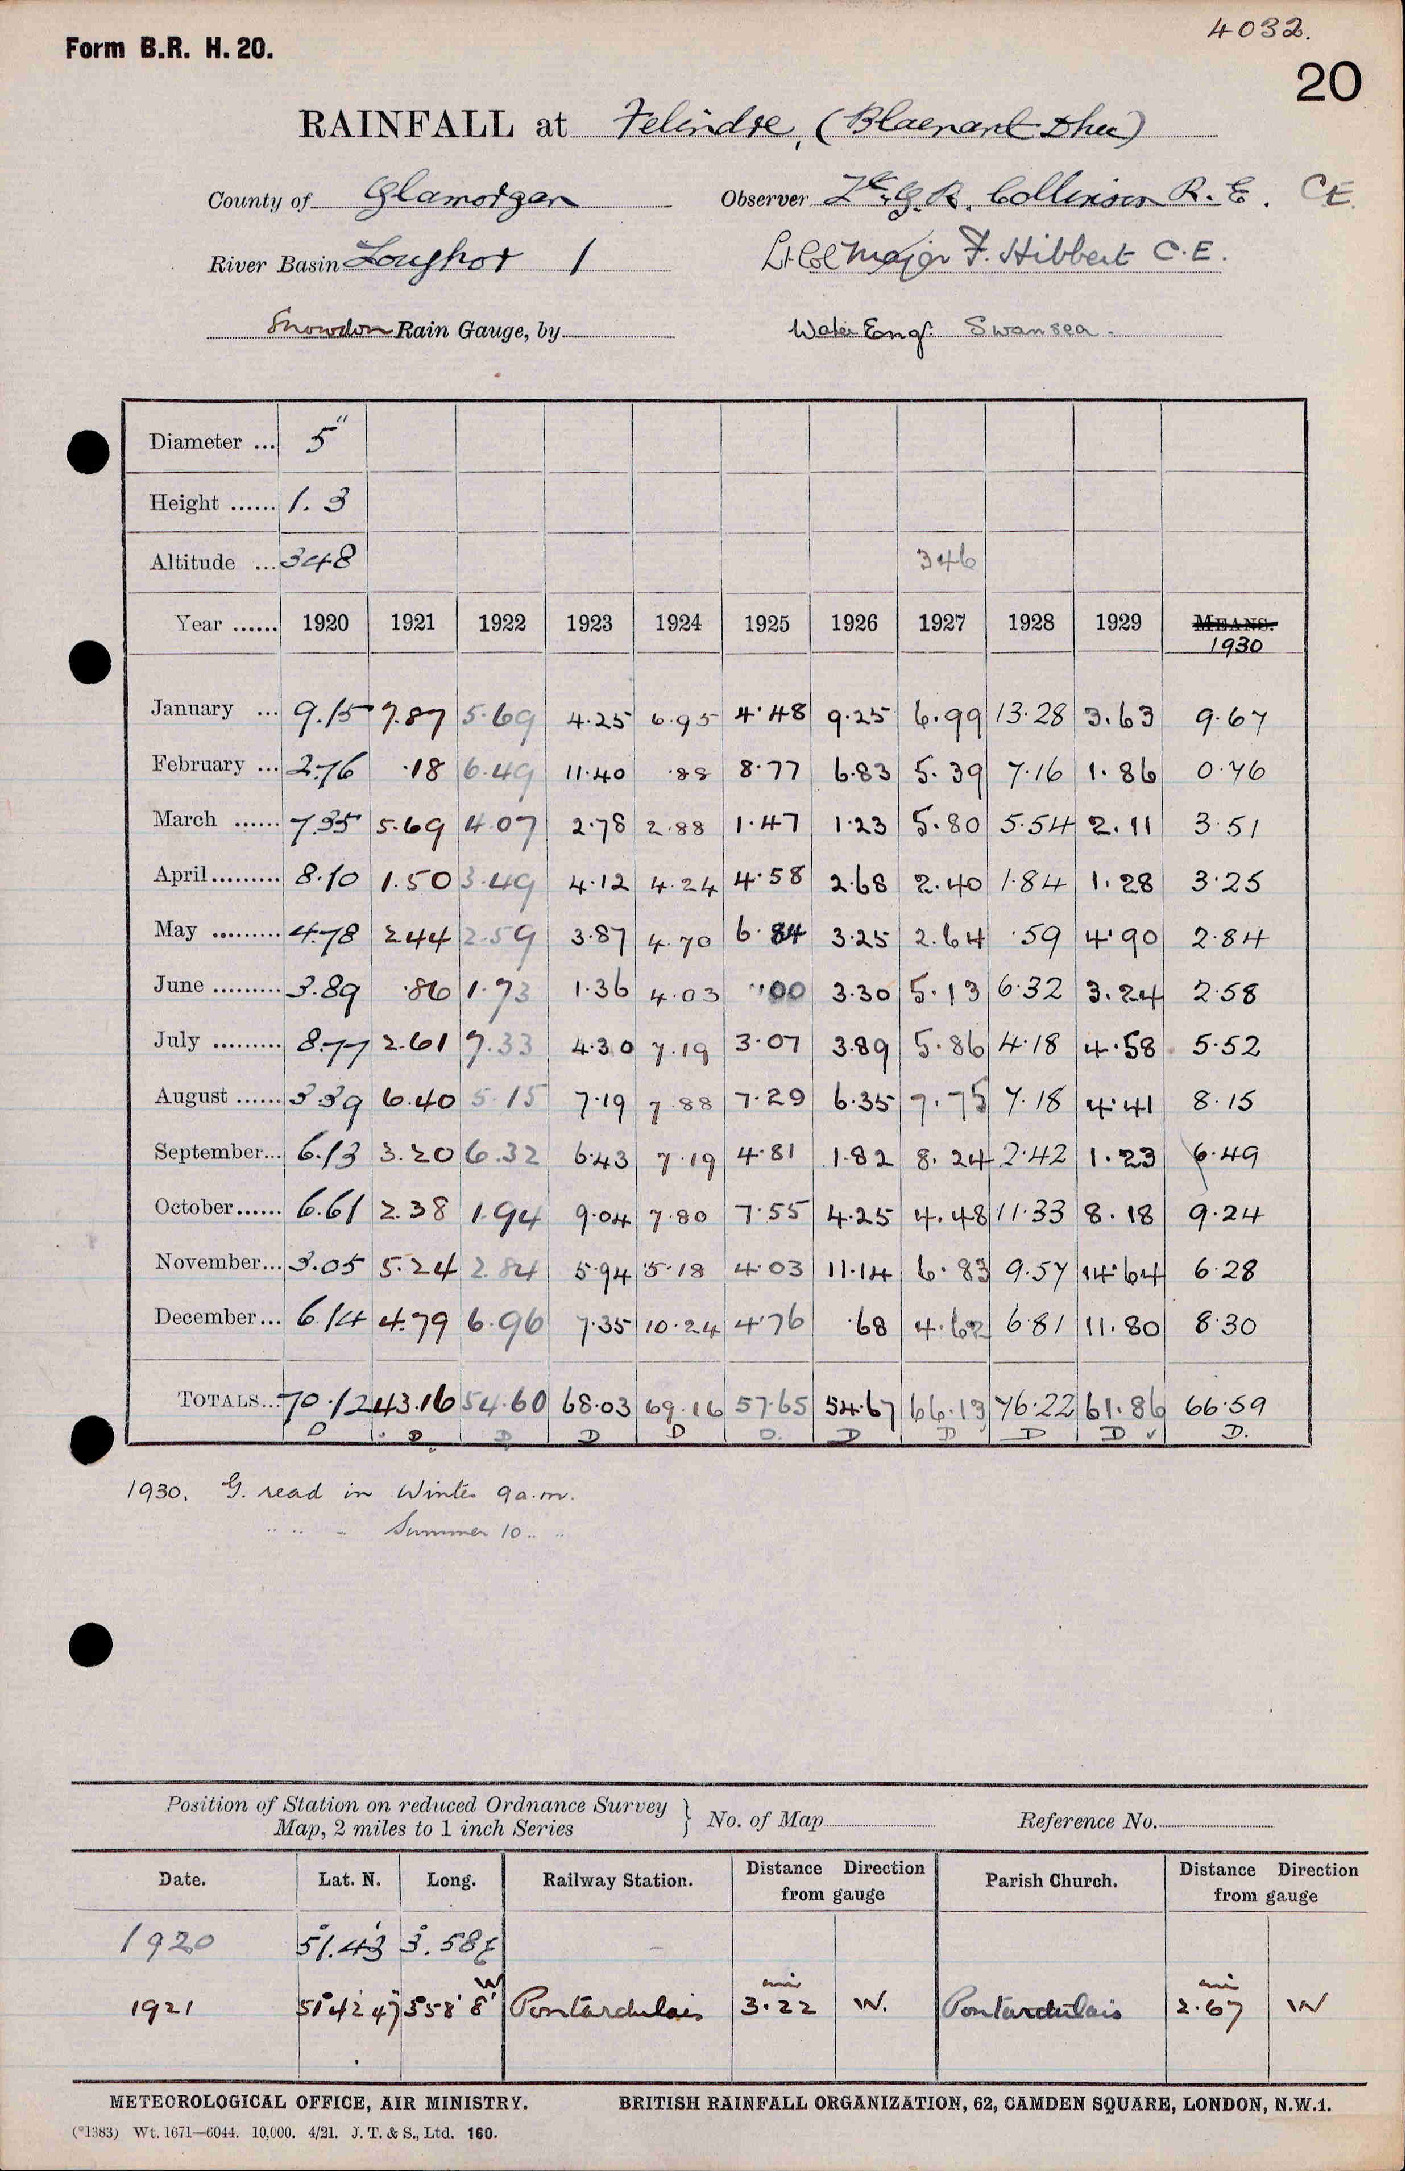 4032.
Form B.R. H. 20.
20
RAINFALL at Felindre, (Blaenant Dhu)
County of Glamorgan Observer Lt. G. R. Collinson R. E. CE.
River Basin Loughor 1 Lt Col Major F. Hibbert C.E.
Snowdon Rain Gauge, by Water Engr. Swansea.
Diameter ... 5"
Height ...... 1.3
Altitude ... 348 346
Year ...... 1920 1921 1922 1923 1924 1925 1926 1927 1928 1929 MEANS.
1930
January ... 9.15 7.87 5.69 4.25 6.95 4.48 9.25 6.99 13.28 3.63 9.67
February ... 2.76 .18 6.49 11.40 .88 8.77 6.83 5.39 7.16 1.86 0.76
March ...... 7.35 5.69 4.07 2.78 2.88 1.47 1.23 5.80 5.54 2.11 3.51
April ......... 8.10 1.50 3.49 4.12 4.24 4.58 2.68 2.40 1.84 1.28 3.25
May ......... 4.78 2.44 2.59 3.87 4.70 6.84 3.25 2.64 .59 4.90 2.84
June ......... 3.89 .86 1.73 1.36 4.03 .00 3.30 5.13 6.32 3.24 2.58
July ......... 8.77 2.61 7.33 4.30 7.19 3.07 3.89 5.86 4.18 4.58 5.52
August ...... 3.39 6.40 5.15 7.19 7.88 7.29 6.35 7.75 7.18 4.41 8.15
September... 6.13 3.20 6.32 6.43 7.19 4.81 1.82 8.24 2.42 1.23 6.49
October...... 6.61 2.38 1.94 9.04 7.80 7.55 4.25 4.48 11.33 8.18 9.24
November... 3.05 5.24 2.84 5.94 5.18 4.03 11.14 6.83 9.57 14.64 6.28
December... 6.14 4.79 6.96 7.35 10.24 4.76 .68 4.62 6.81 11.80 8.30
TOTALS... 70.12 43.16 54.60 68.03 69.16 57.65 54.67 66.13 76.22 61.86 66.59
D D D D D D. D D D D ✓ D.
1930. G. read in Winter 9 a.m.
" " " Summer 10 " "
Position of Station on reduced Ordnance Survey Map, 2 miles to 1 inch Series } No. of Map Reference No.
Date. Lat. N. Long. Railway Station. Distance Direction from gauge Parish Church. Distance Direction from gauge
1920 51°.43' 3°.58 E
1921 51° 42' 47" 3° 58' 8" W Pontardulais 3.22 mi W. Pontardulais 2.67 mi W
METEOROLOGICAL OFFICE, AIR MINISTRY. BRITISH RAINFALL ORGANIZATION, 62, CAMDEN SQUARE, LONDON, N.W.1.
(*1383) Wt. 1671—6044. 10,000. 4/21. J. T. & S., Ltd. 160.